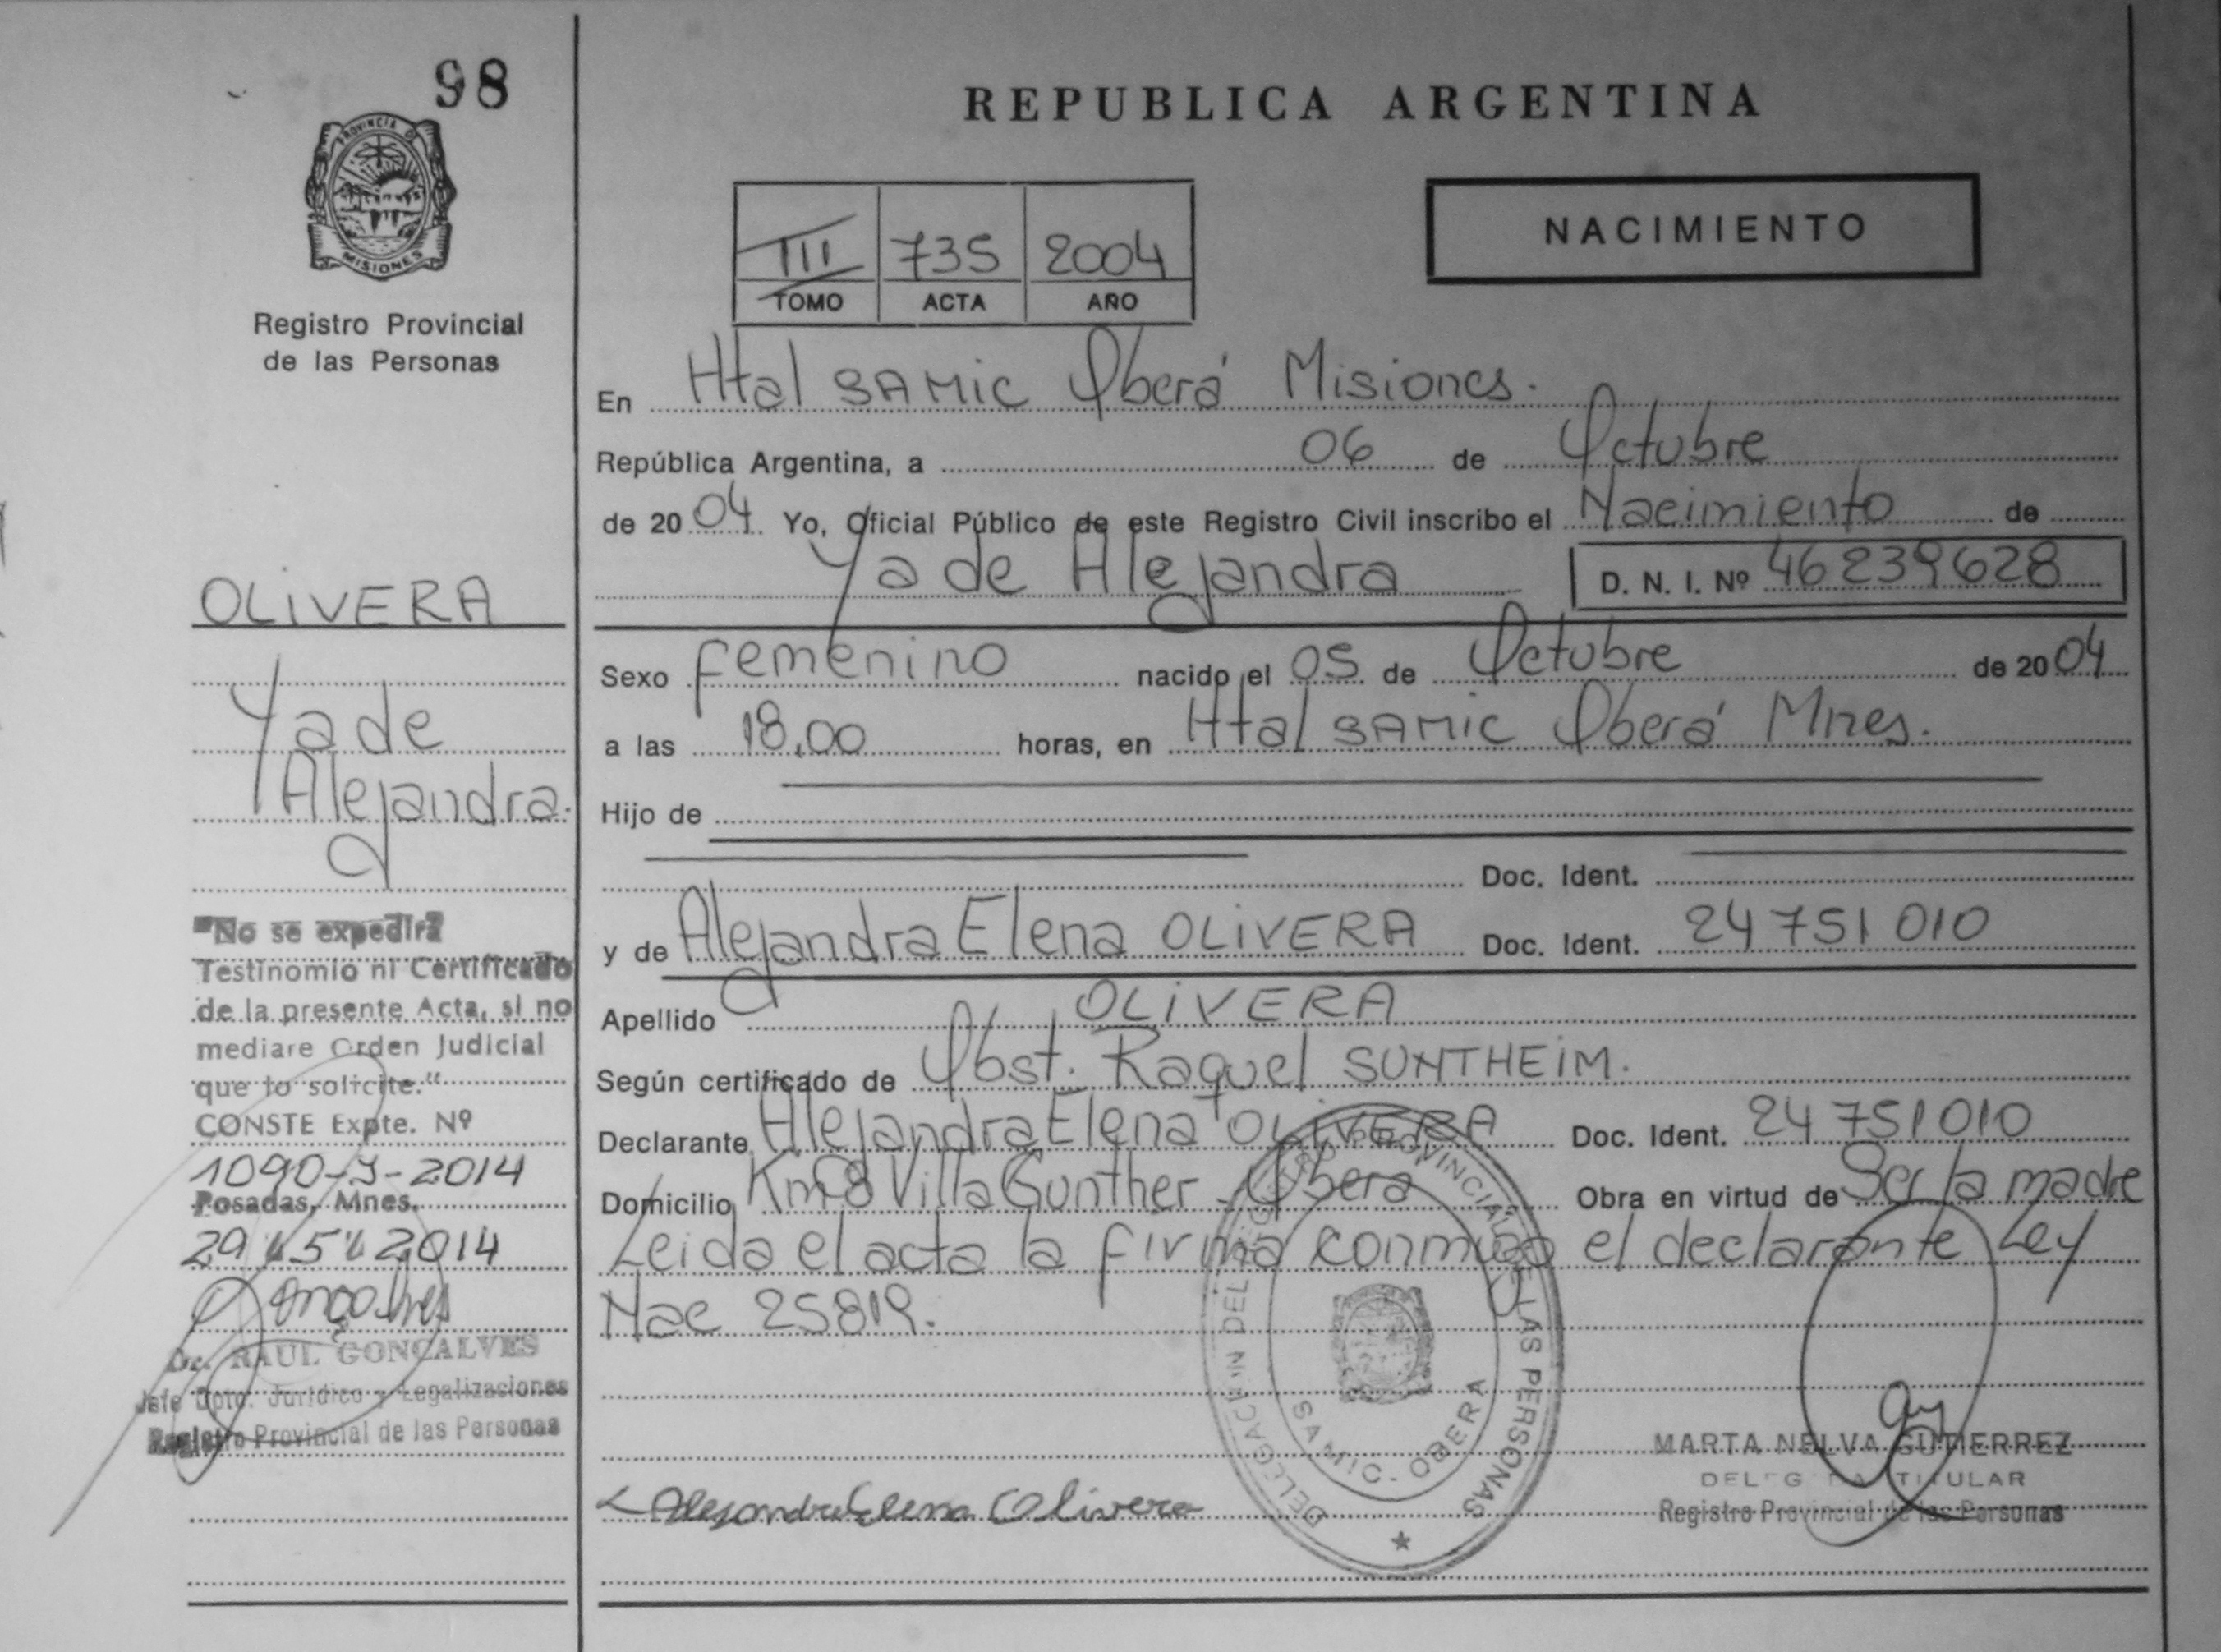 98
PROVINCIA D
MISIONES
Registro Provincial
de las Personas
OLIVERA
Yade
Alejandra.
"No se expedirá
Testinomio ni Certificado
de la presente Acta, si no
mediare Orden Judicial
que lo solicite."
CONSTE Expte. Nº
1090-J-2014
Posadas, Mnes.
29 " 5 " 2014
Gonçalves
Dr. RAUL GONÇALVES
Jefe Dpto. Jurídico y Legalizaciones
Registro Provincial de las Personas
REPUBLICA ARGENTINA
III 735 2004
TOMO ACTA AÑO
NACIMIENTO
En Htal SAMIC Oberá Misiones.
República Argentina, a 06 de Octubre
de 2004 Yo, Oficial Público de este Registro Civil inscribo el Nacimiento de
Yade Alejandra D. N. I. Nº 46239628
Sexo femenino nacido el 05 de Octubre de 2004
a las 18,00 horas, en Htal SAMIC Oberá Mnes.
Hijo de
Doc. Ident.
y de Alejandra Elena OLIVERA Doc. Ident. 24 751 010
Apellido OLIVERA
Según certificado de Obst. Raquel SUNTHEIM.
Declarante Alejandra Elena OLIVERA Doc. Ident. 24 751 010
Domicilio Km 8 Villa Gunther - Oberá Obra en virtud de Ser la madre
Leida el acta la firma conmigo el declarante Ley
Nac 25819.
DELEGACIÓN DEL REGISTRO PROVINCIAL DE LAS PERSONAS
SAMIC - OBERA
MARTA NELVA GUTIERREZ
DELEGADA TITULAR
Registro Provincial de las Personas
Alejandra Elena Olivera